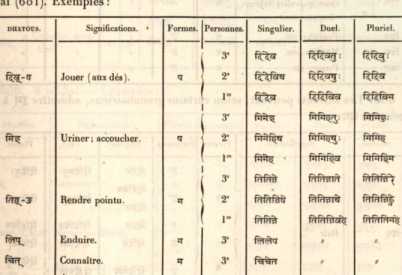 al (601). Exemples:
DHATOUS. Significations. Formes. Personnes. Singulier. Duel. Pluriel.
3ᵉ दिदेव दिदिवतुः दिदिवुः
Jouer (aux dés). प 2ᵉ दिदेविष दिदिवषुः दिदिव
1ʳᵉ दिदेव दिदिविव दिदिविम
3ᵉ मिमेह मिमिहतुः मिमिहुः
मिह् Uriner; accoucher. प 2ᵉ मिमेहिष मिमिहषुः मिमिह
1ʳᵉ मिमेह मिमिहिव मिमिहिम
3ᵉ
Rendre pointu. म 2ᵉ
1ʳᵉ
लिप् Enduire. म 3ᵉ लिलेप " "
चित् Connaître. म 3ᵉ चिचेत " "